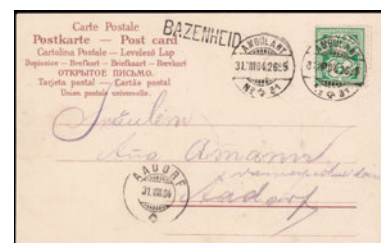 Carte Postale
Postkarte — Post card
Cartolina Postale — Levelező Lap
Dopisnice — Brefkort — Briefkaart — Brevkort
ОТКРЫТОЕ ПИСЬМО.
Tarjeta postal — Cartão postal
Union postale universelle.
BAZENHEID
AMBULANT
31.VIII.04.26
No 31
AMBULANT
No 31
Fräulein
Amann
Aadorf
AADORF
31.VIII.04